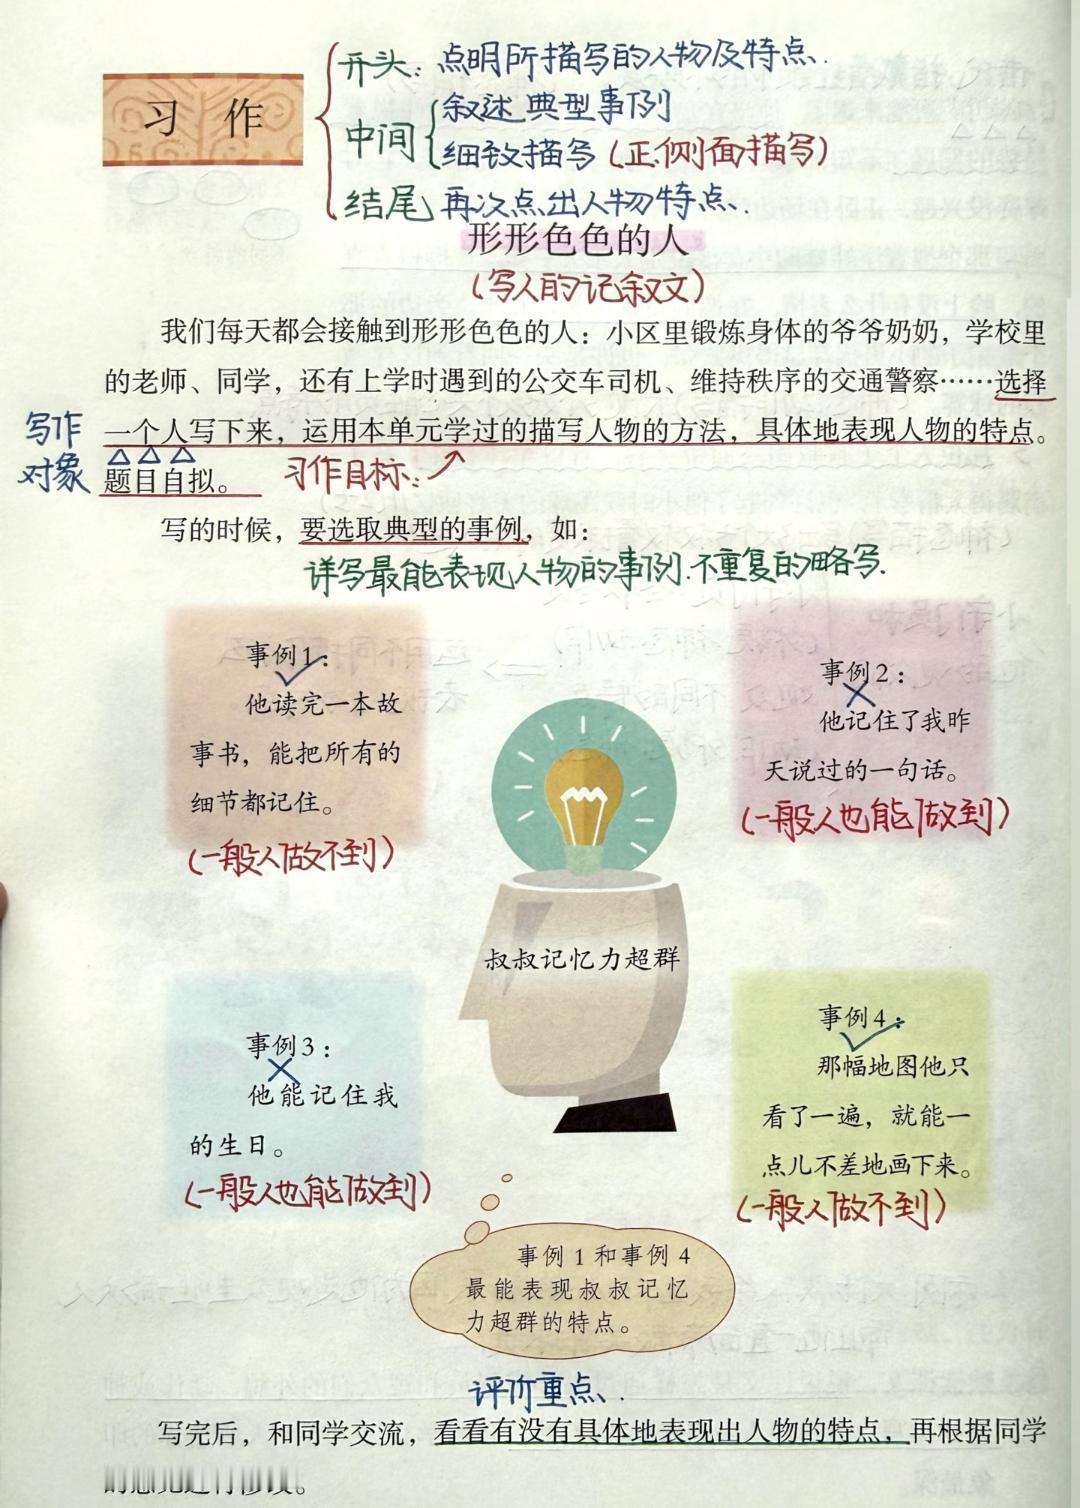 习 作
开头：点明所描写的人物及特点.
中间
叙述典型事例
细致描写（正.侧面描写）
结尾 再次点出人物特点.
形形色色的人
（写人的记叙文）
我们每天都会接触到形形色色的人：小区里锻炼身体的爷爷奶奶，学校里
的老师、同学，还有上学时遇到的公交车司机、维持秩序的交通警察……选择
写作
对象
一个人写下来，运用本单元学过的描写人物的方法，具体地表现人物的特点。
题目自拟。
习作目标：
写的时候，要选取典型的事例，如：
详写最能表现人物的事例.不重复的略写.
事例1：
他读完一本故
事书，能把所有的
细节都记住。
（一般人做不到）
事例2：
他记住了我昨
天说过的一句话。
（一般人也能做到）
叔叔记忆力超群
事例3：
他能记住我
的生日。
（一般人也能做到）
事例4：
那幅地图他只
看了一遍，就能一
点儿不差地画下来。
（一般人做不到）
事例 1 和事例 4
最能表现叔叔记忆
力超群的特点。
评价重点、.
写完后，和同学交流，看看有没有具体地表现出人物的特点，再根据同学